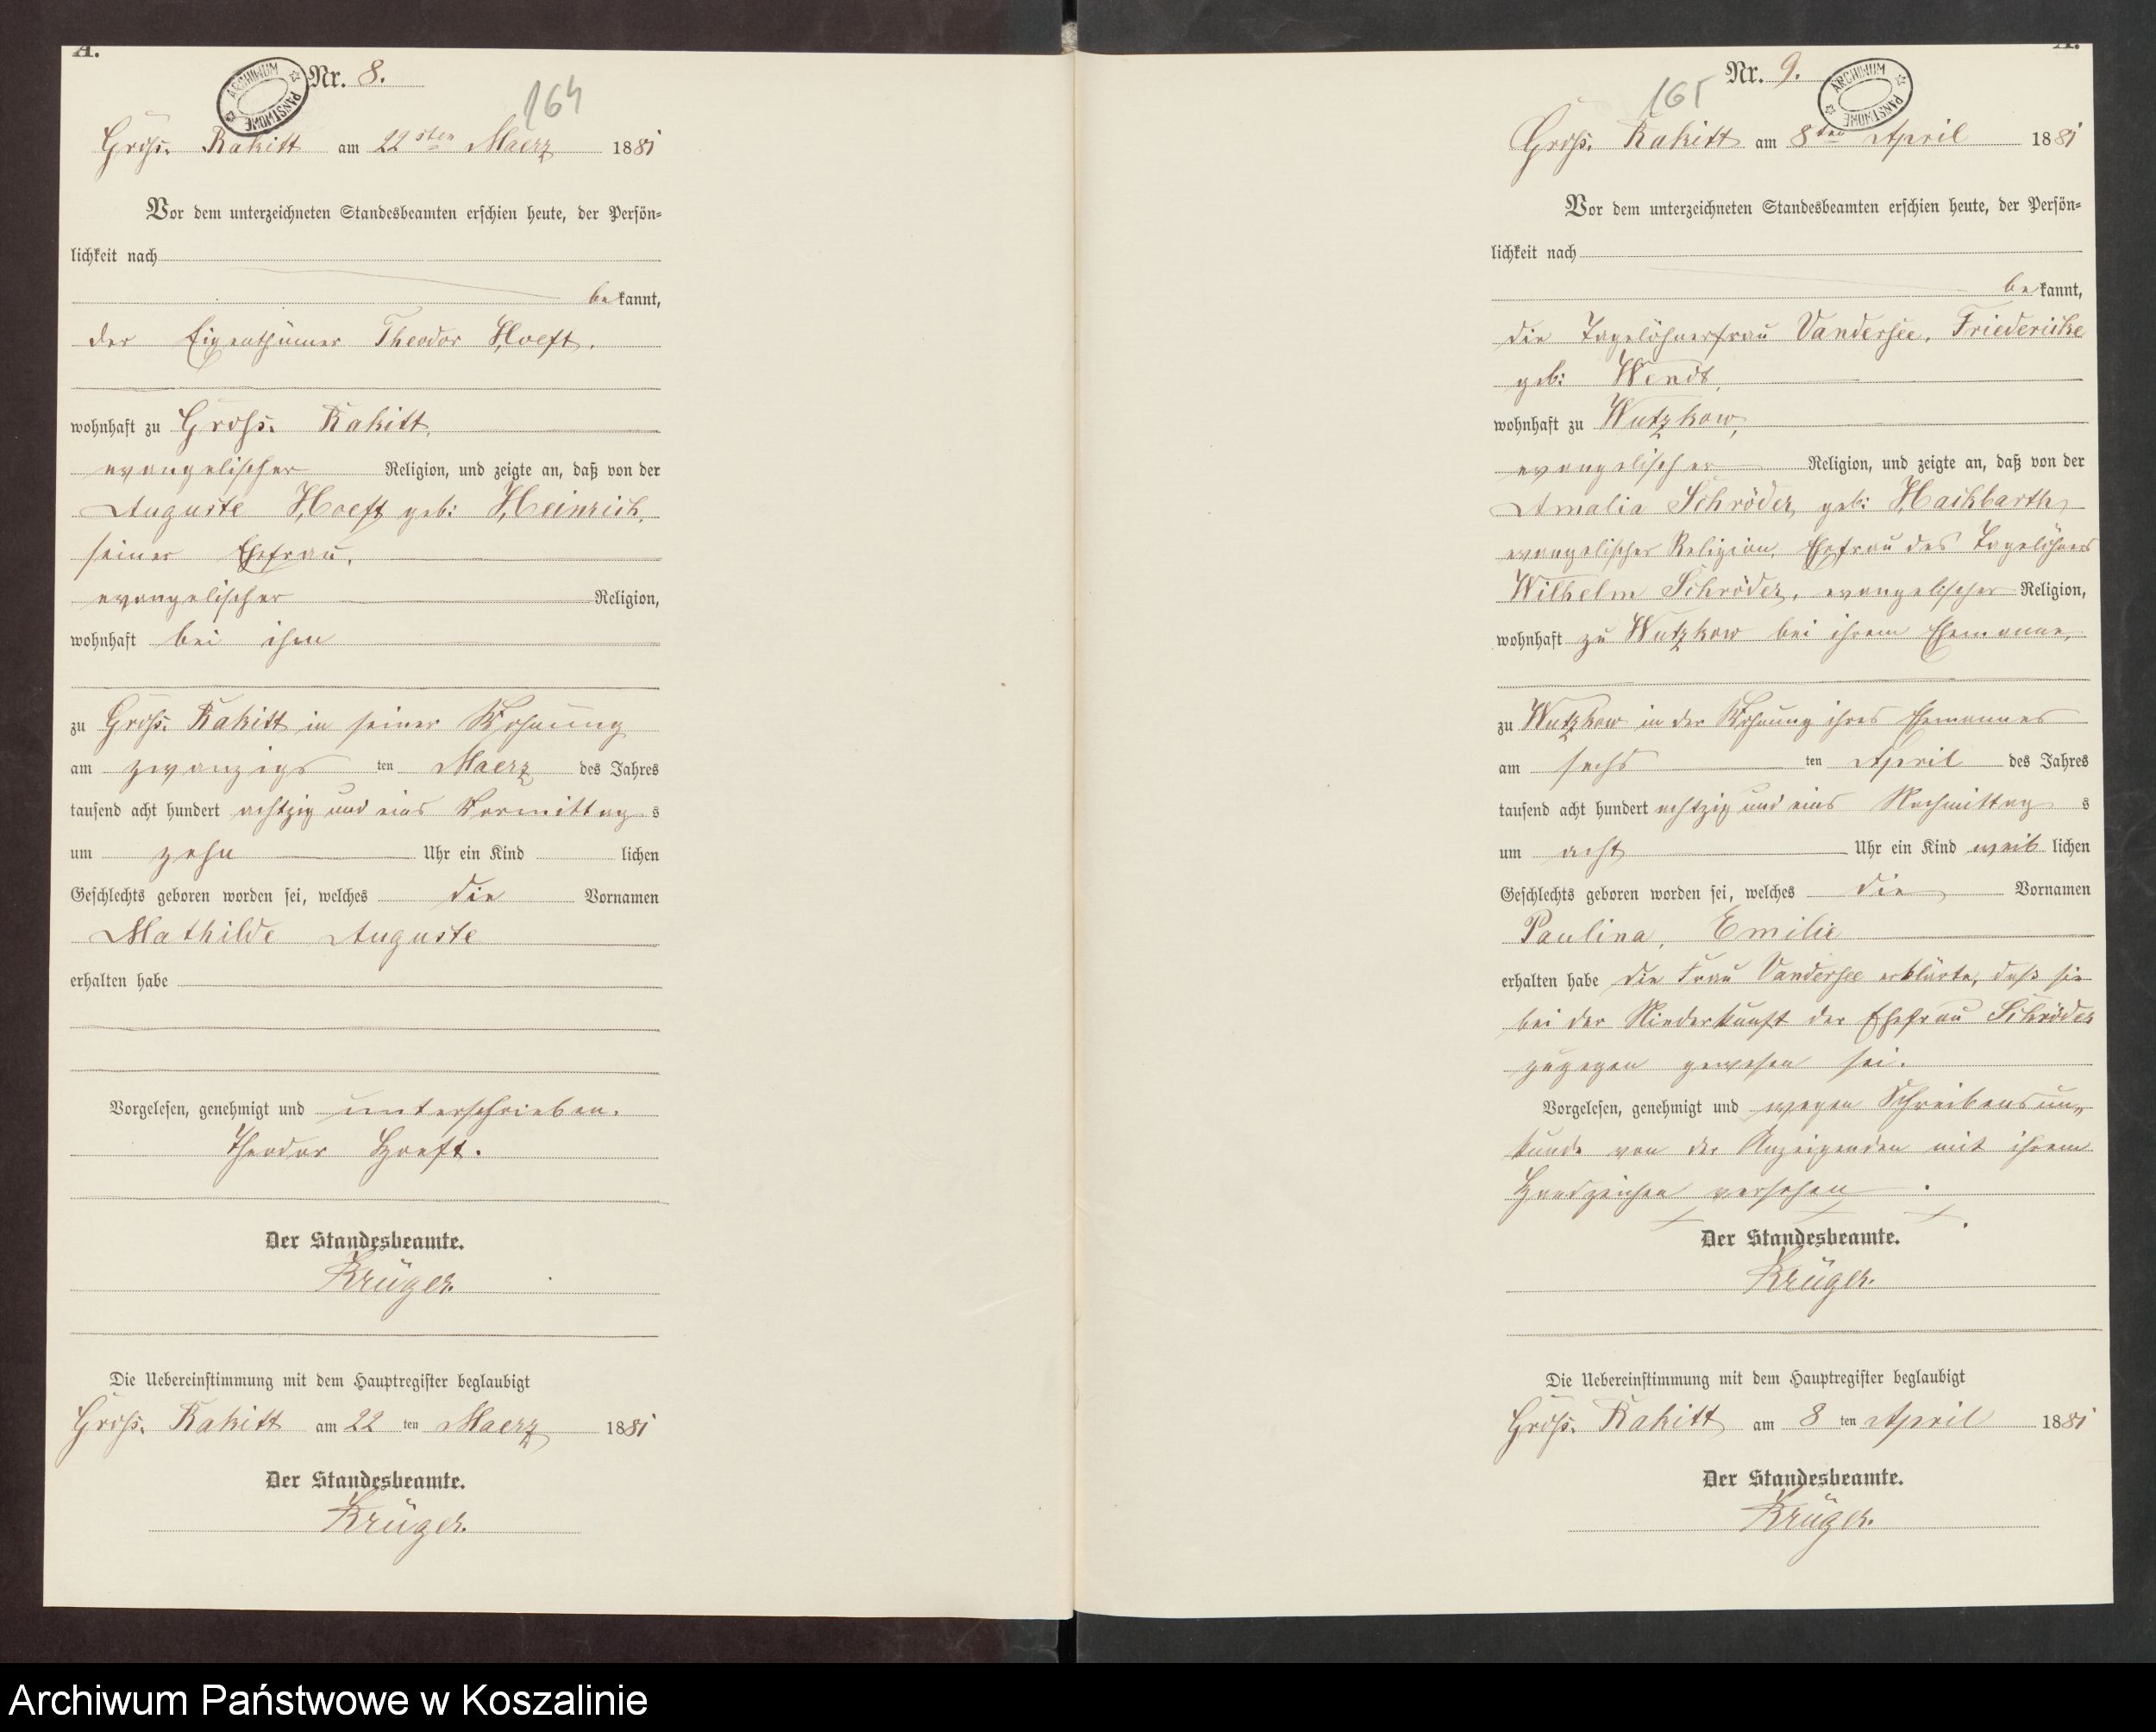 A.
Nr. 8.
ARCHIWUM PAŃSTWOWE
164
Gross. Rakitt am 22sten Maerz 1881
Vor dem unterzeichneten Standesbeamten erschien heute, der Persön=
lichkeit nach
be kannt,
der Eigenthümer Theodor Hoeft.
wohnhaft zu Gross. Rakitt,
evangelischer Religion, und zeigte an, daß von der
Auguste Hoeft geb: Heinrich,
seiner Ehefrau,
evangelischer Religion,
wohnhaft bei ihm
zu Gross. Rakitt in seiner Wohnung
am zwanzigs ten Maerz des Jahres
tausend acht hundert achtzig und eins Vormittag s
um zehn Uhr ein Kind lichen
Geschlechts geboren worden sei, welches die Vornamen
Mathilde Auguste
erhalten habe
Vorgelesen, genehmigt und unterschrieben.
Theodor Hoeft.
Der Standesbeamte.
Krüger.
Die Uebereinstimmung mit dem Hauptregister beglaubigt
Gross. Rakitt am 22 ten Maerz 1881
Der Standesbeamte.
Krüger.
A.
Nr. 9.
ARCHIWUM PAŃSTWOWE
165
Gross. Rakitt am 8ten April 1881
Vor dem unterzeichneten Standesbeamten erschien heute, der Persön=
lichkeit nach
be kannt,
die Tagelöhnerfrau Vandersee, Friedericke
geb: Wendt,
wohnhaft zu Wutzkow,
evangelischer Religion, und zeigte an, daß von der
Amalia Schröder, geb: Hackbarth,
evangelischer Religion, Ehefrau des Tagelöhners
Wilhelm Schröder, evangelischer Religion,
wohnhaft zu Wutzkow bei ihrem Ehemanne,
zu Wutzkow in der Wohnung ihres Ehemannes
am sechs ten April des Jahres
tausend acht hundert achtzig und eins Nachmittag s
um acht Uhr ein Kind weib lichen
Geschlechts geboren worden sei, welches die Vornamen
Paulina, Emilie
erhalten habe die Frau Vandersee erklärte, daß sie
bei der Niederkunft der Ehefrau Schröder
zugegen gewesen sei.
Vorgelesen, genehmigt und wegen Schreibensun„
kunde von der Anzeigenden mit ihrem
Handzeichen versehen.
+ + +.
Der Standesbeamte.
Krüger.
Die Uebereinstimmung mit dem Hauptregister beglaubigt
Gross. Rakitt am 8 ten April 1881
Der Standesbeamte.
Krüger.
Archiwum Państwowe w Koszalinie